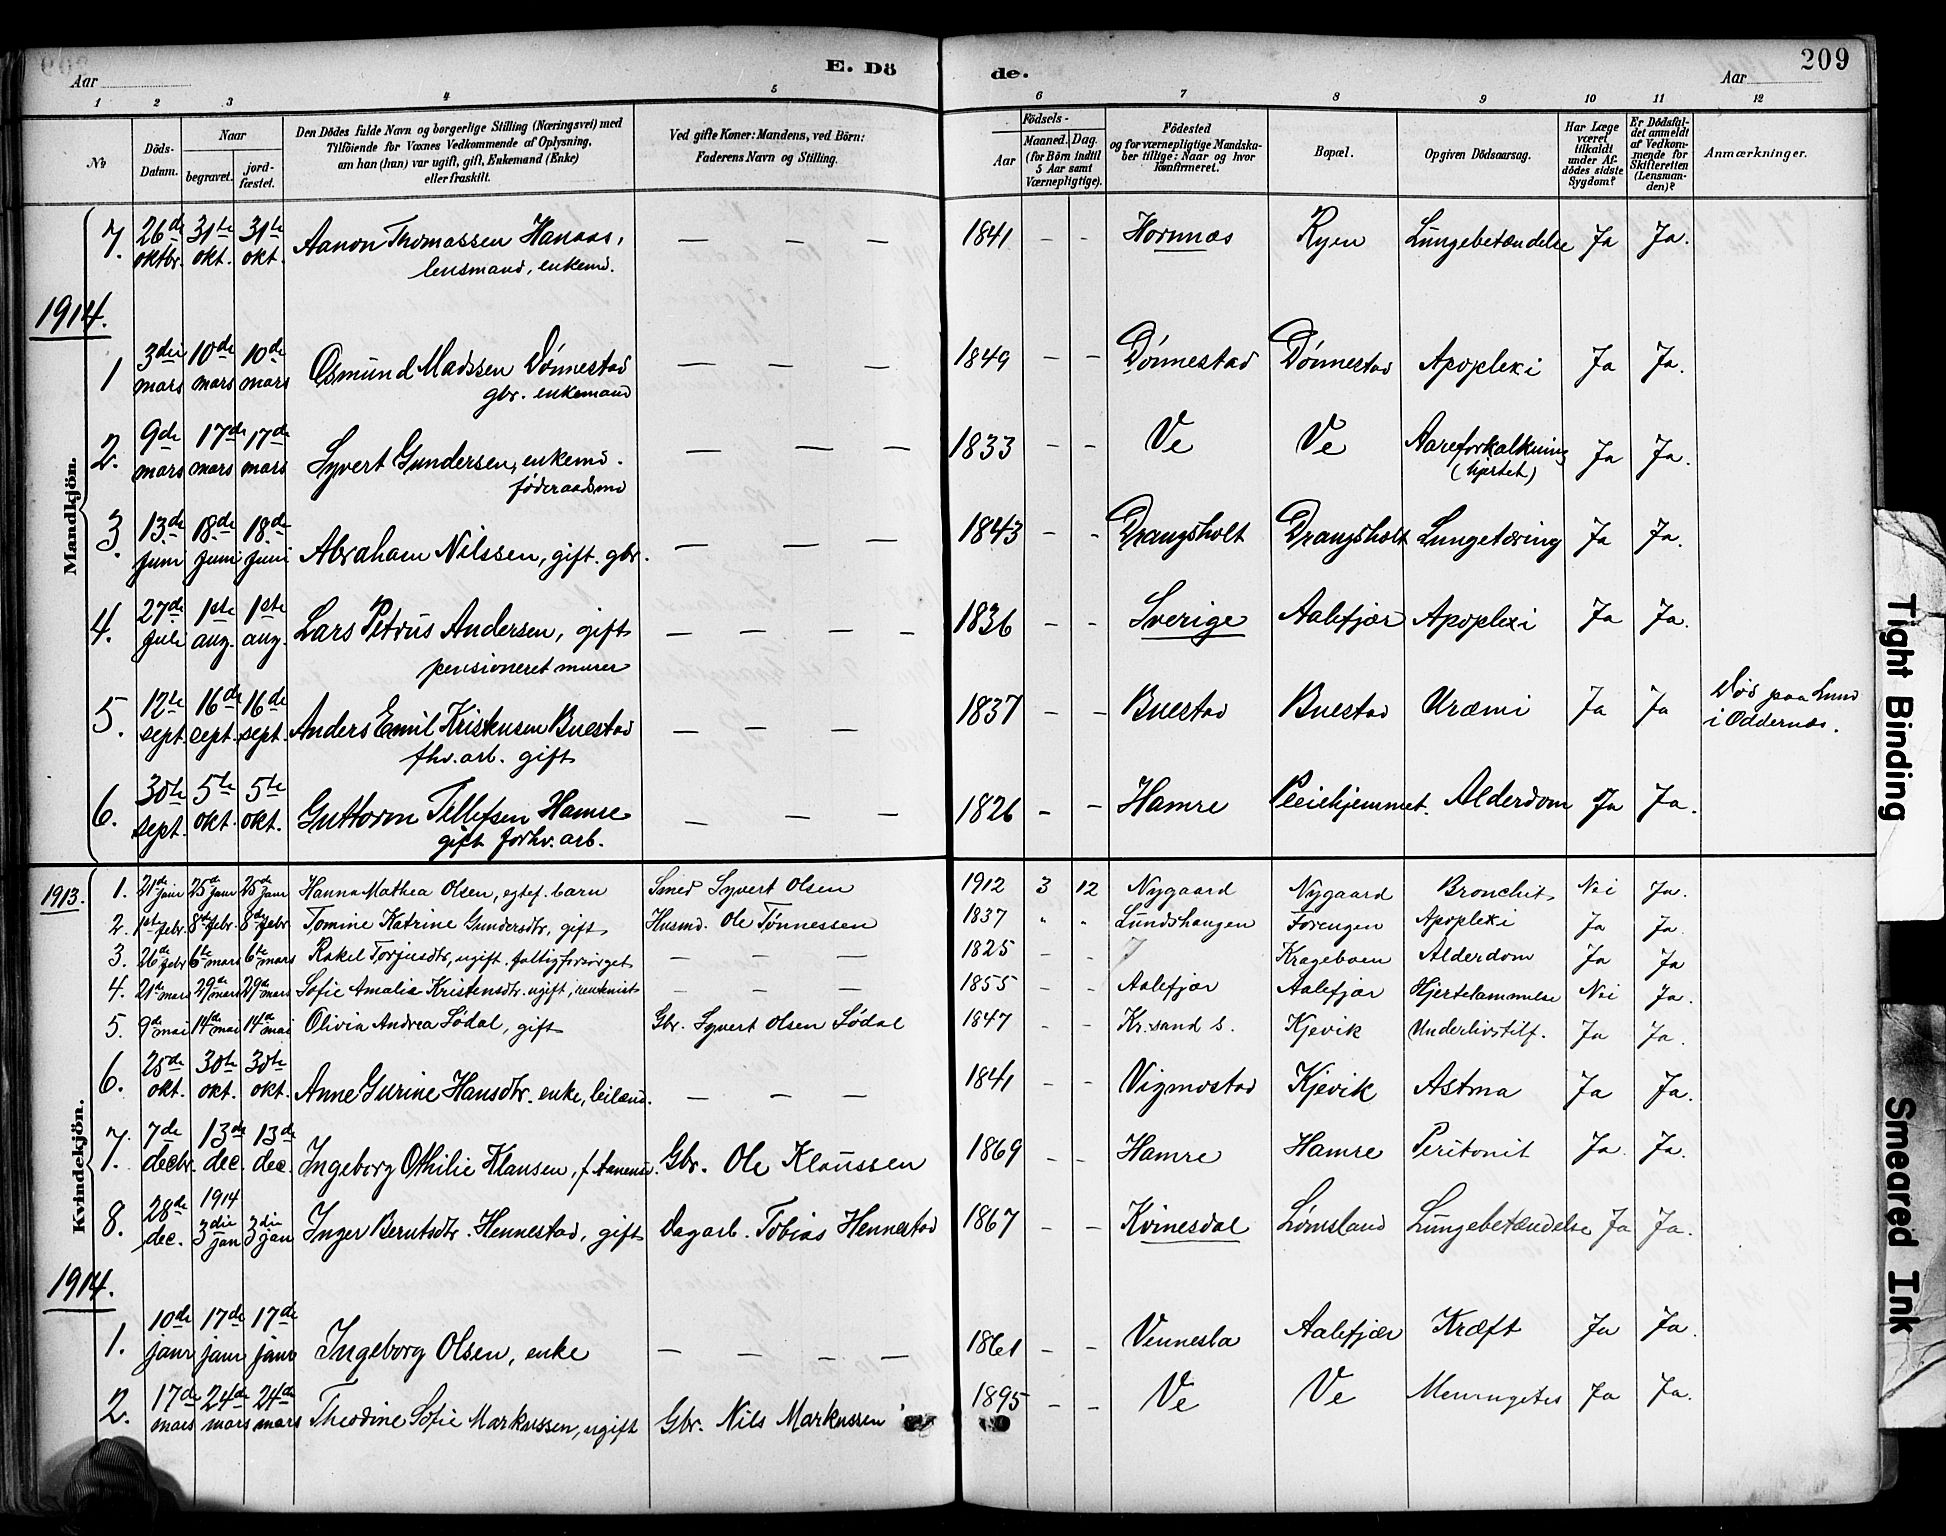 209
Aar
E. Dö
de.
Aar
1 2 3 4 5 6 7 8 9 10 11 12
No
Döds-
Datum.
Naar
begravet.
jord-
fæstet.
Den Dödes fulde Navn og borgerlige Stilling (Næringsvei) med
Tilföiende for Voxnes Vedkommende af Oplysning,
om han (hun) var ugift, gift, Enkemand (Enke)
eller fraskilt.
Ved gifte Koner: Mandens, ved Börn:
Faderens Navn og Stilling.
Födsels-
Aar
Maaned. Dag.
(for Börn indtil
5 Aar samt
Værnepligtige).
Födested
og for værnepligtige Mandska-
ber tillige: Naar og hvor
konfirmeret.
Bopæl.
Opgiven Dödsaarsag.
Har Læge
været
tilkaldt
under Af-
dödes sidste
Sygdom?
Er Dödsfal-
det anmeldt
af Vedkom-
mende for
Skifteretten
(Lensman-
den)?
Anmærkninger.
Mandkjön.
7. 26de oktbr. 31te okt. 31te okt. Aanon Thomassen Hanaas, — — — 1841 - - Hornnæs Ryen Lungebetændelse Ja Ja.
lensmand, enkemd.
1914.
1 3die mars 10de mars 10de mars Osmund Madssen Dønnestad — — — 1849 - - Dønnestad Dønnestad Apoplexi Ja Ja.
gbr. enkemand
2. 9de mars 17de mars 17de mars Syvert Gundersen, enkemd. — — — 1833 - - Ve Ve Aareforkalkning Ja Ja.
føderaadsmd (hjertet)
3. 13de juni 18de juni 18de juni Abraham Nilssen, gift. gbr. — — — 1843 - - Drangsholt Drangsholt Lungetæring Ja Ja.
4. 27de juli 1ste aug. 1ste aug. Lars Petrus Andersen, gift — — — — 1836 - - Sverige Aalefjær Apoplexi Ja Ja.
pensioneret murer
5. 12te sept. 16de sept. 16de sept. Anders Emil Kristensen Buestad — — — 1837 - - Buestad Buestad Uræmi Ja Ja Død paa Lund
fhv. arb. gift i Oddernæs.
6. 30te sept. 5te okt. 5te okt. Guttorm Tellefsen Hamre — — — 1826 - - Hamre Pleiehjemmet. Alderdom Ja Ja.
gift forhv. arb.
Kvindekjön.
1913. 1. 21de janr 25de janr 25de janr Hanna Mathea Olsen, egtef. barn Smed Syvert Olsen 1912 3 12 Nygaard Nygaard Bronchit Nei Ja.
2. 1ste febr. 8de febr. 8de febr. Tomine Katrine Gundersdtr, gift Husmd. Ole Tønnessen 1837 " " Lundshaugen Forengen Apoplexi Ja Ja.
3. 26de febr 6te mars 6te mars Rakel Torjusdtr, ugift. fattigforsørget — — — 1825 - - Krageboen Alderdom Ja Ja
4. 21de mars 29de mars 29de mars Sofie Amalia Kristensdtr. ugift, rentenist — — — 1855 - - Aalefjær Aalefjær Hjertelammelse Nei Ja.
5. 9de mai 14de mai 14de mai Olivia Andrea Sødal, gift Gbr. Syvert Olsen Sødal 1847 - - Kr.sand S. Kjevik Underlivstilf. Ja Ja.
6. 25de okt. 30te okt. 30te okt. Anne Gurine Hansdtr. enke, leilænd. — — — 1841 - - Vigmostad Kjevik Astma Ja Ja.
7. 7de decbr. 13de dec. 13de dec. Ingeborg Othilie Klausen, f. Gbr. Ole Klaussen 1869 - - Hamre Hamre Peritonit Ja. Ja.
8. 28de dec. 1914 3die jan 3die jan Inger Berntsdtr. Hennestad, gift Dagarb. Tobias Hennestad 1867 - - Kvinesdal Lømsland Lungebetændelse Ja Ja.
1914.
1. 10de janr 17de janr 17de janr Ingeborg Olsen, enke — — — — 1861 - - Vennesla Aalefjær Kræft Ja Ja.
2. 17de mars 24de mars 24de mars Theodine Sofie Markussen, ugift Gbr. Nils Markussen 1895 - - Ve Ve Meningetes Ja Ja.
Tight Binding
Smeared Ink